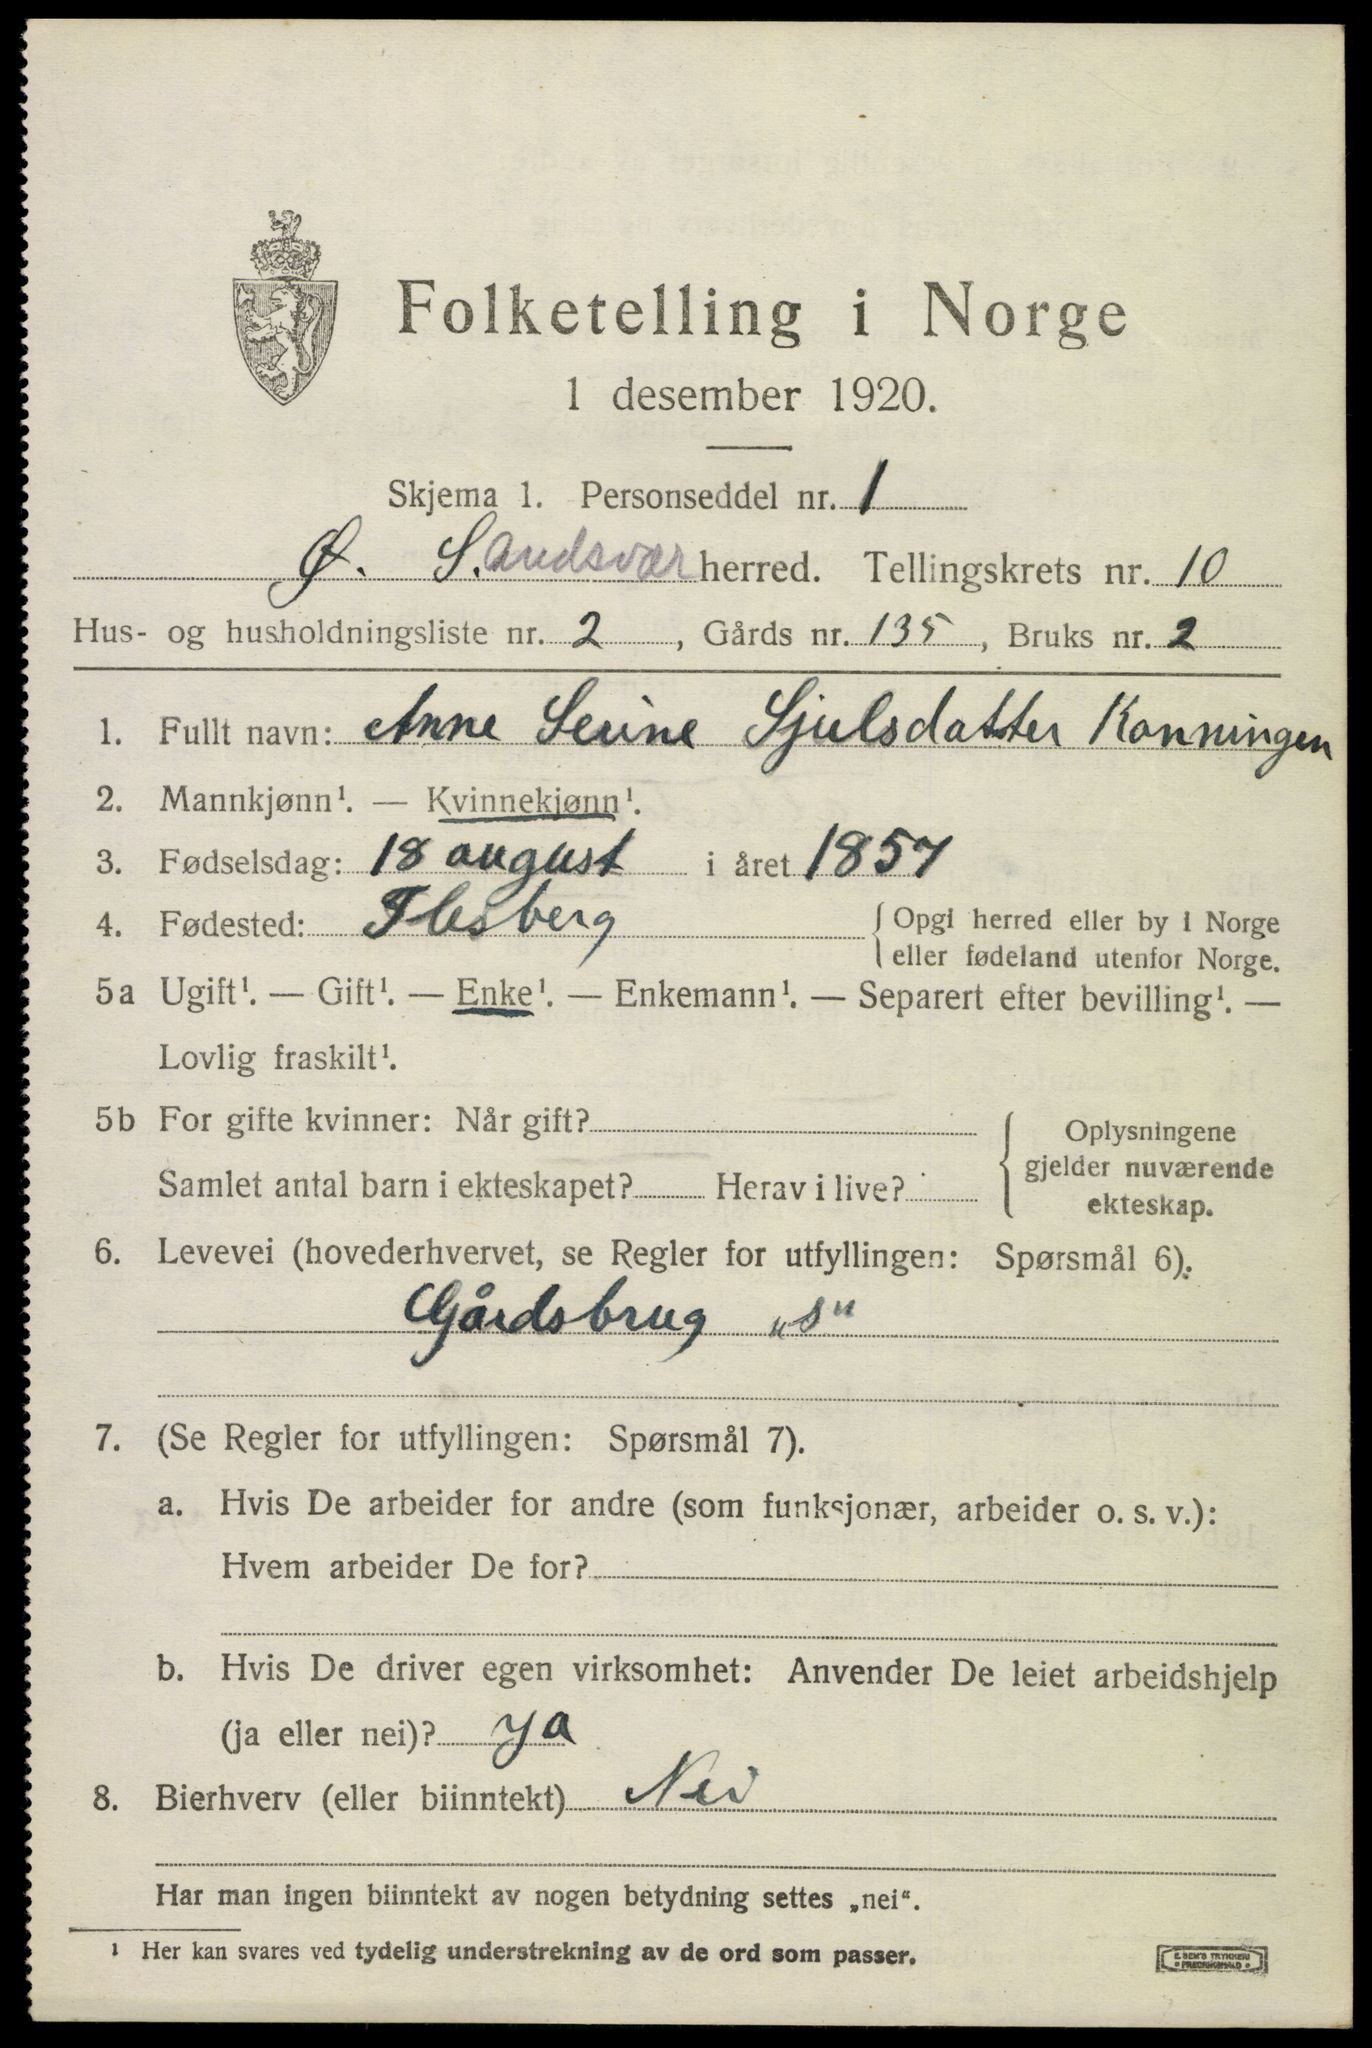 Folketelling i Norge
1 desember 1920.
Skjema 1. Personseddel nr. 1
Ø. S. andsvær herred. Tellingskrets nr. 10
Hus- og husholdningsliste nr. 2, Gårds nr. 135, Bruks nr. 2
1. Fullt navn: Anne Serine Sjulsdatter Konningen
2. Mannkjønn¹. — Kvinnekjønn¹.
3. Fødselsdag: 18 august i året 1857
4. Fødested: Flesberg { Opgi herred eller by i Norge
eller fødeland utenfor Norge.
5a Ugift¹. — Gift¹. — Enke¹. — Enkemann¹. — Separert efter bevilling¹. —
Lovlig fraskilt¹.
5b For gifte kvinner: Når gift?
Samlet antal barn i ekteskapet? Herav i live?
{ Oplysningene
gjelder nuværende
ekteskap.
6. Levevei (hovederhvervet, se Regler for utfyllingen: Spørsmål 6).
Gårdsbrug „s“
7. (Se Regler for utfyllingen: Spørsmål 7).
a. Hvis De arbeider for andre (som funksjonær, arbeider o. s. v.):
Hvem arbeider De for?
b. Hvis De driver egen virksomhet: Anvender De leiet arbeidshjelp
(ja eller nei)? ya
8. Bierhverv (eller biinntekt) Nei
Har man ingen biinntekt av nogen betydning settes „nei“.
¹ Her kan svares ved tydelig understrekning av de ord som passer.
E. SEM'S TRYKKERI
FREDRIKSHALD